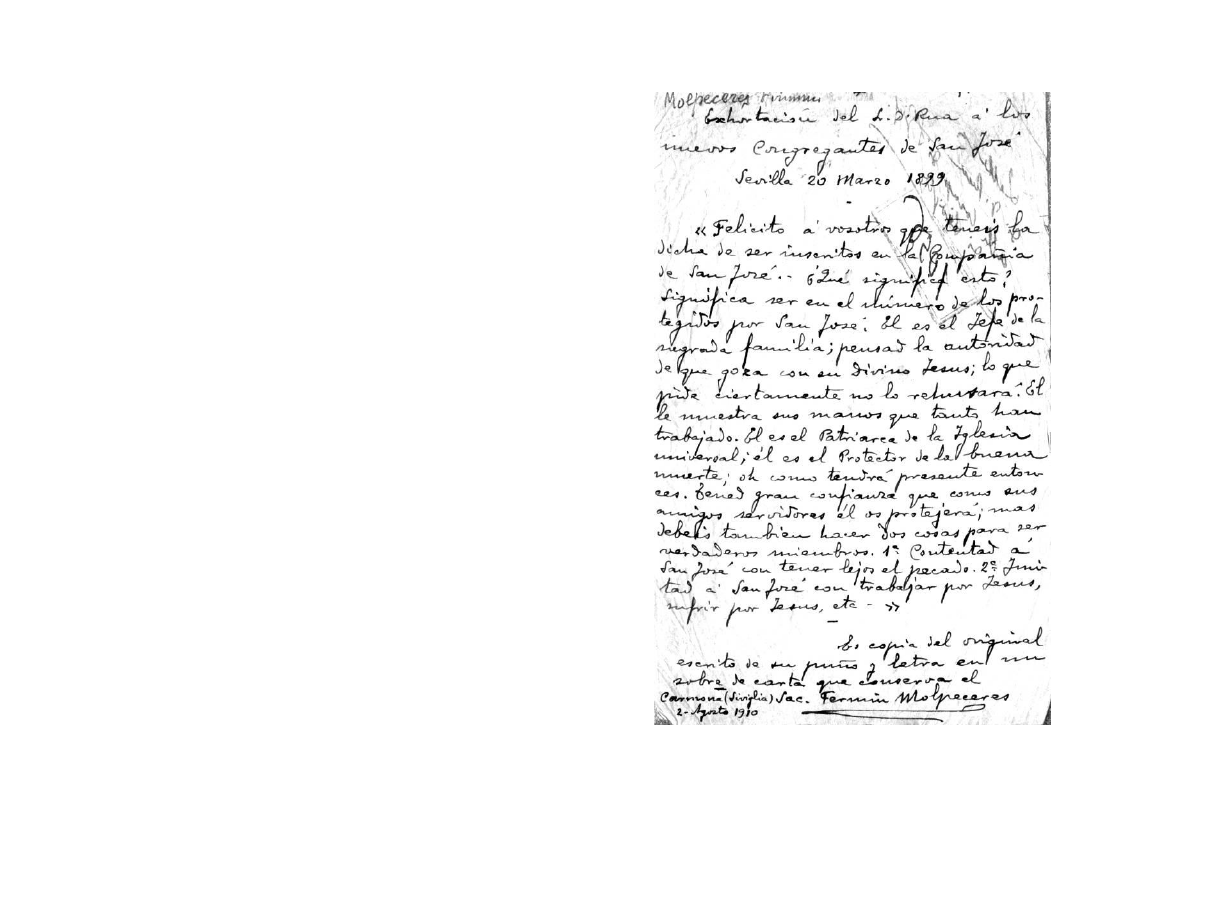 Molpeceres Fermin
Exhortación del S. D. Rua á los
nuevos Congregantes de San José
Sevilla 20 Marzo 1899
« Felicito á vosotros que teneis la
dicha de ser inscritos en la Compañia
de San José.- ¿Qué significa esto?
Significa ser en el número de los pro-
tegidos por San José: El es el Jefe de la
sagrada familia; pensad la autoridad
de que goza con su Divino Jesus; lo que
pide ciertamente no lo rehusará: El
le muestra sus manos que tanto han
trabajado. El es el Patriarca de la Iglesia
universal; él es el Protector de la buena
muerte; oh como tendrá presente enton-
ces. Tened gran confianza que como sus
amigos servidores él os protejerá; mas
debeis tambien hacer dos cosas para ser
verdaderos miembros. 1ª Contentad á
San José con tener lejos el pecado. 2ª Imi-
tad á San José con trabajar por Jesus,
sufrir por Jesus, etc - »
Es copia del original
escrito de su puño y letra en un
sobre de carta que conserva el
Carmona (Siviglia) Sac. Fermin Molpeceres
2-Agosto 1910